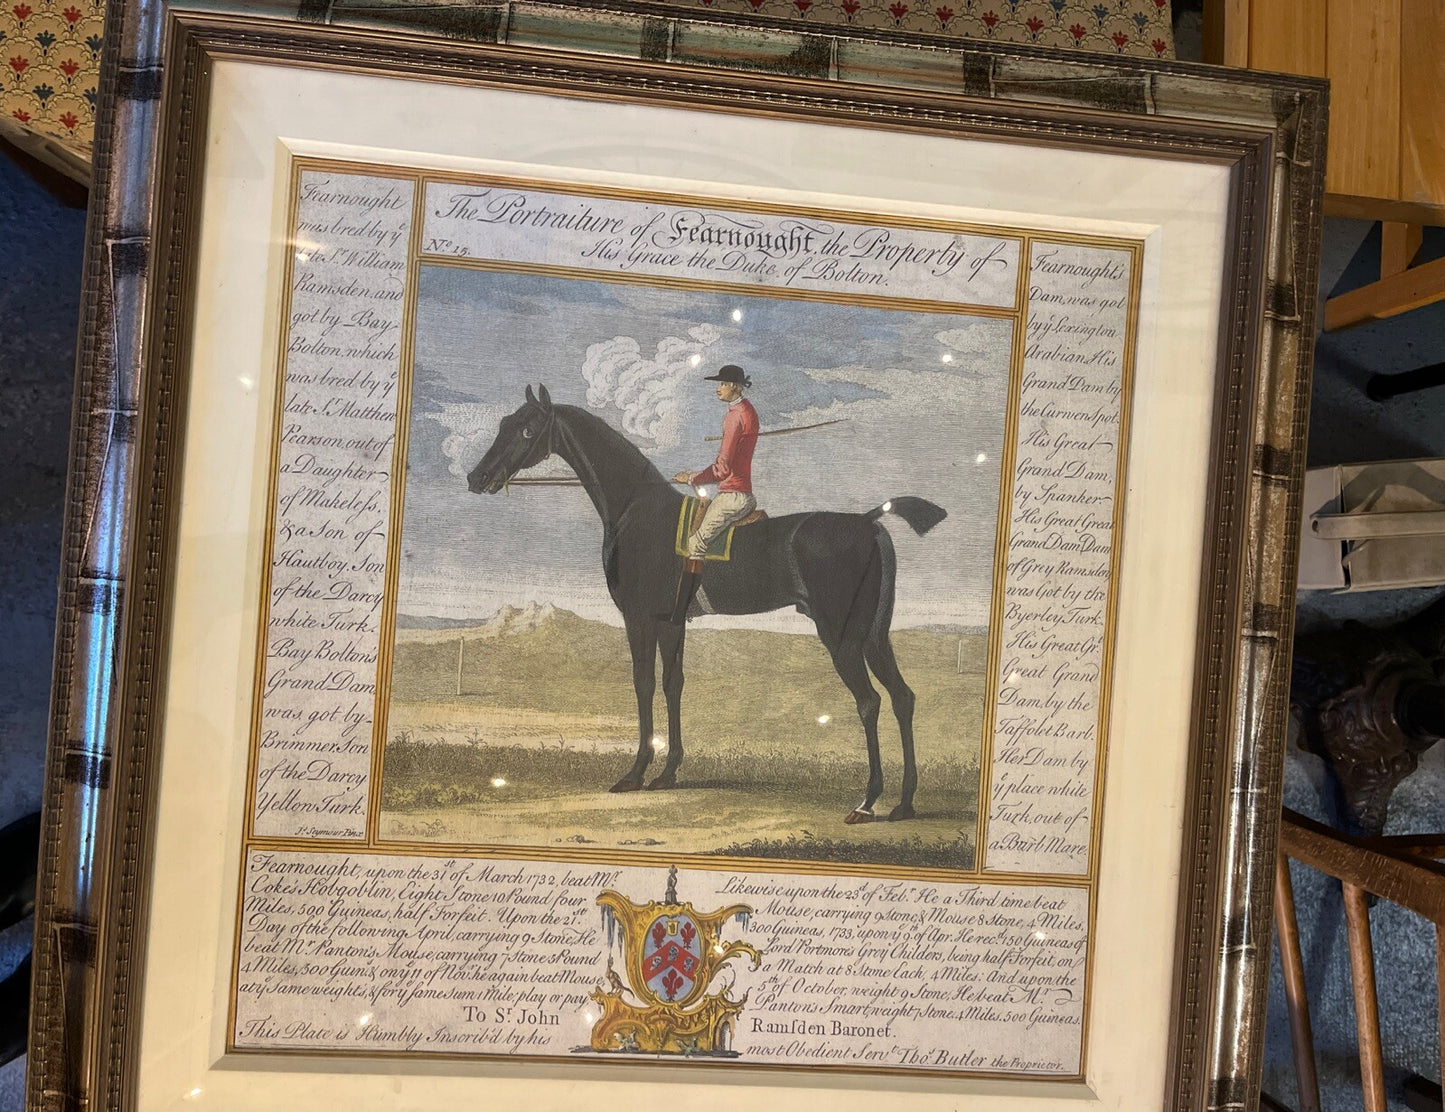 The Portraiture of Fearnought, the Property of
No. 15.
His Grace the Duke of Bolton.
Fearnought
was bred by ye
late Sr. William
Ramsden, and
got by Bay
Bolton, which
was bred by ye
late Sr. Matthew
Pearson, out of
a Daughter
of Makeless,
& a Son of
Hautboy, Son
of the Darcy
white Turk.
Bay Bolton's
Grand Dam
was got by
Brimmer, Son
of the Darcy
Yellow Turk.
Js. Seymour Pinx
Fearnought's
Dam, was got
by ye Lexington
Arabian, His
Grand Dam by
the Curwen spot.
His Great
Grand Dam,
by Spanker
His Great Great
Grand Dam, Dam
of Grey Ramsden
was Got by the
Byerley Turk.
His Great Gr.t
Great Grand
Dam, by the
Taffolet Barb.
Her Dam by
ye place white
Turk, out of
a Barb Mare.
Fearnought, upon the 31st of March 1732, beat Mr.
Cokes Hobgoblin, Eight Stone 10 Pound four
Miles, 500 Guineas, half Forfeit. Upon the 21st.
Day of the following April, carrying 9 Stone, He
beat Mr. Panton's Mouse, carrying 7 Stone 5 Pound
4 Miles, 300 Guins. & on ye 11 of Novr. he again beat Mouse
at ye Same weights, & for ye same sum 1 Mile, play or pay,
Likewise upon the 23d. of Feb.r He a Third time beat
Mouse, carrying 9 stone, & Mouse 8 Stone, 4 Miles,
300 Guineas, 1733, upon ye 9th. of Apr. He recd. 150 Guineas of
Lord Portmore's Grey Childers, being half Forfeit on
a Match at 8 Stone Each, 4 Miles. And upon the
5th of October, weight 9 Stone, He beat Mr.
Panton's Smart, weight 7 Stone, 4 Miles, 500 Guineas.
To Sr. John Ramsden Baronet.
This Plate is Humbly Inscrib'd by his most Obedient Servt. Thos. Butler the Proprietor.